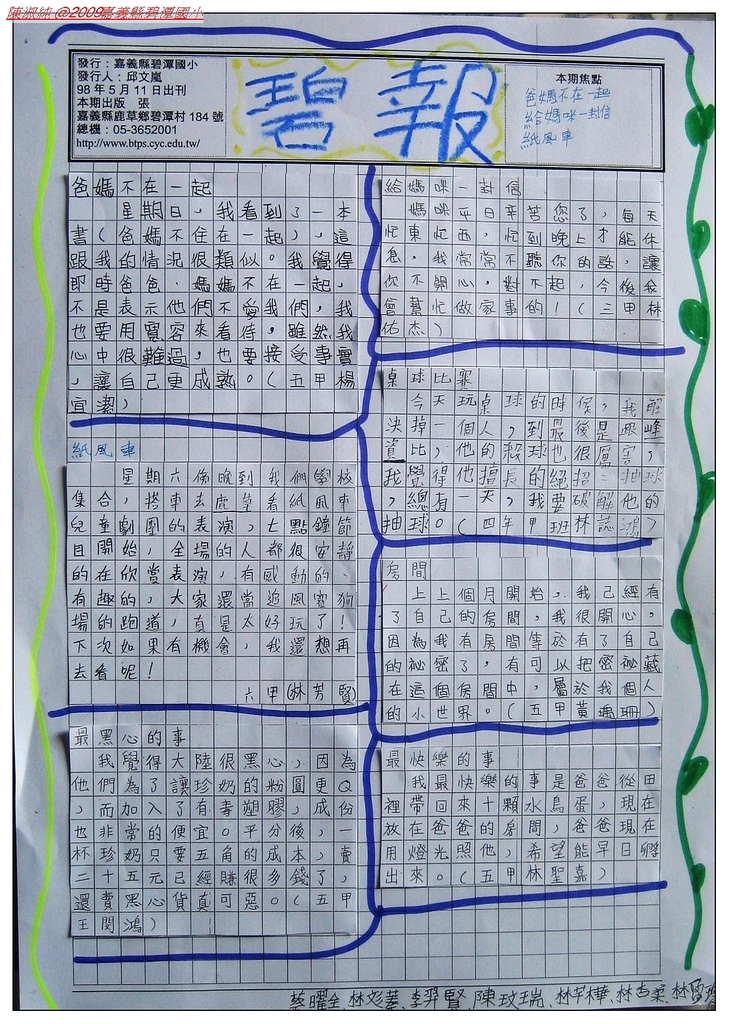 陳淑純 @2009嘉義縣碧潭國小
發行：嘉義縣碧潭國小
發行人：邱文嵐
98 年 5 月 11 日出刊
本期出版　張
嘉義縣鹿草鄉碧潭村 184 號
總機：05-3652001
http://www.btps.cyc.edu.tw/
碧報
本期焦點
爸媽不在一起
給媽咪一封信
紙風車
爸媽不在一起
星期日，我看到了一本
書（爸媽不住在一起），這
跟我的情況很類似。我覺得
即時爸爸、媽媽不在一起，
不是表示他們不愛我們，我
也要用寬容來看待，雖然我
心中很難過，也要接受事實
，讓自己更成熟。（五甲楊
宜潔）
紙風車
星期六傍晚到我們學校
集合，搭車去鹿草看紙風車
兒童劇團的表演，七點鐘節
目開始，全場的人都很安靜
的在欣賞表演，有感動的、
有趣的，大家還當追風賽狗
場的跑道，真是太好玩了！
下次如果有機會，我還想再
去看呢！
六甲（林芳賢）
最黑心的事
我覺得大陸很黑心，因為
他們為了讓珍奶的粉圓更Q
，而加入了有毒塑膠，成份
也非常的便宜。平分後，一
杯珍奶只要五角的成本，賣
二十五元已經賺很多錢了，
還賣黑心貨真可惡。（五甲
王閔鴻）
給媽咪一封信
媽咪平日辛苦您了，每天
忙東忙西，忙到晚上才能休
息，我常常不聽你的話，讓
你不開心，對不起，今後我
會幫忙做家事的！（三甲林
佑杰）
桌球比賽
今天玩桌球的時候，我解
決掉一個人，到最後是跟峰
資比，他的殺球也很厲害，
我覺得他擅長的絕招：抽球
，總有一天，我要破解他的
抽球。（四年甲班林誌鴻）
房間
上上個月開始，我己經有
了自己的房間，我很開心，
因為我有房間等於有了自己
的祕密了，有可以把密祕藏
在這個房間中，屬於我個人
的小世界。（五甲黃瑀珊）
最快樂的事
我最快樂的事是爸爸從田
裡帶回來十顆水鳥蛋，現在
放在爸爸的房間，爸爸現在
用燈光照他，希望能早日孵
出來。（五甲林聖嘉）
蔡曜全、林彣蓁、李羿賢、陳玟瑞、林芊樺、林杏柔、